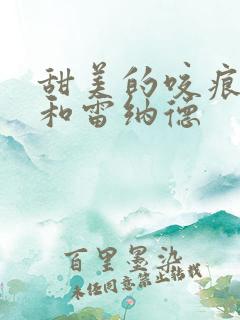 甜美的咬痕
和雷纳德
百里墨染
未经同意禁止转载